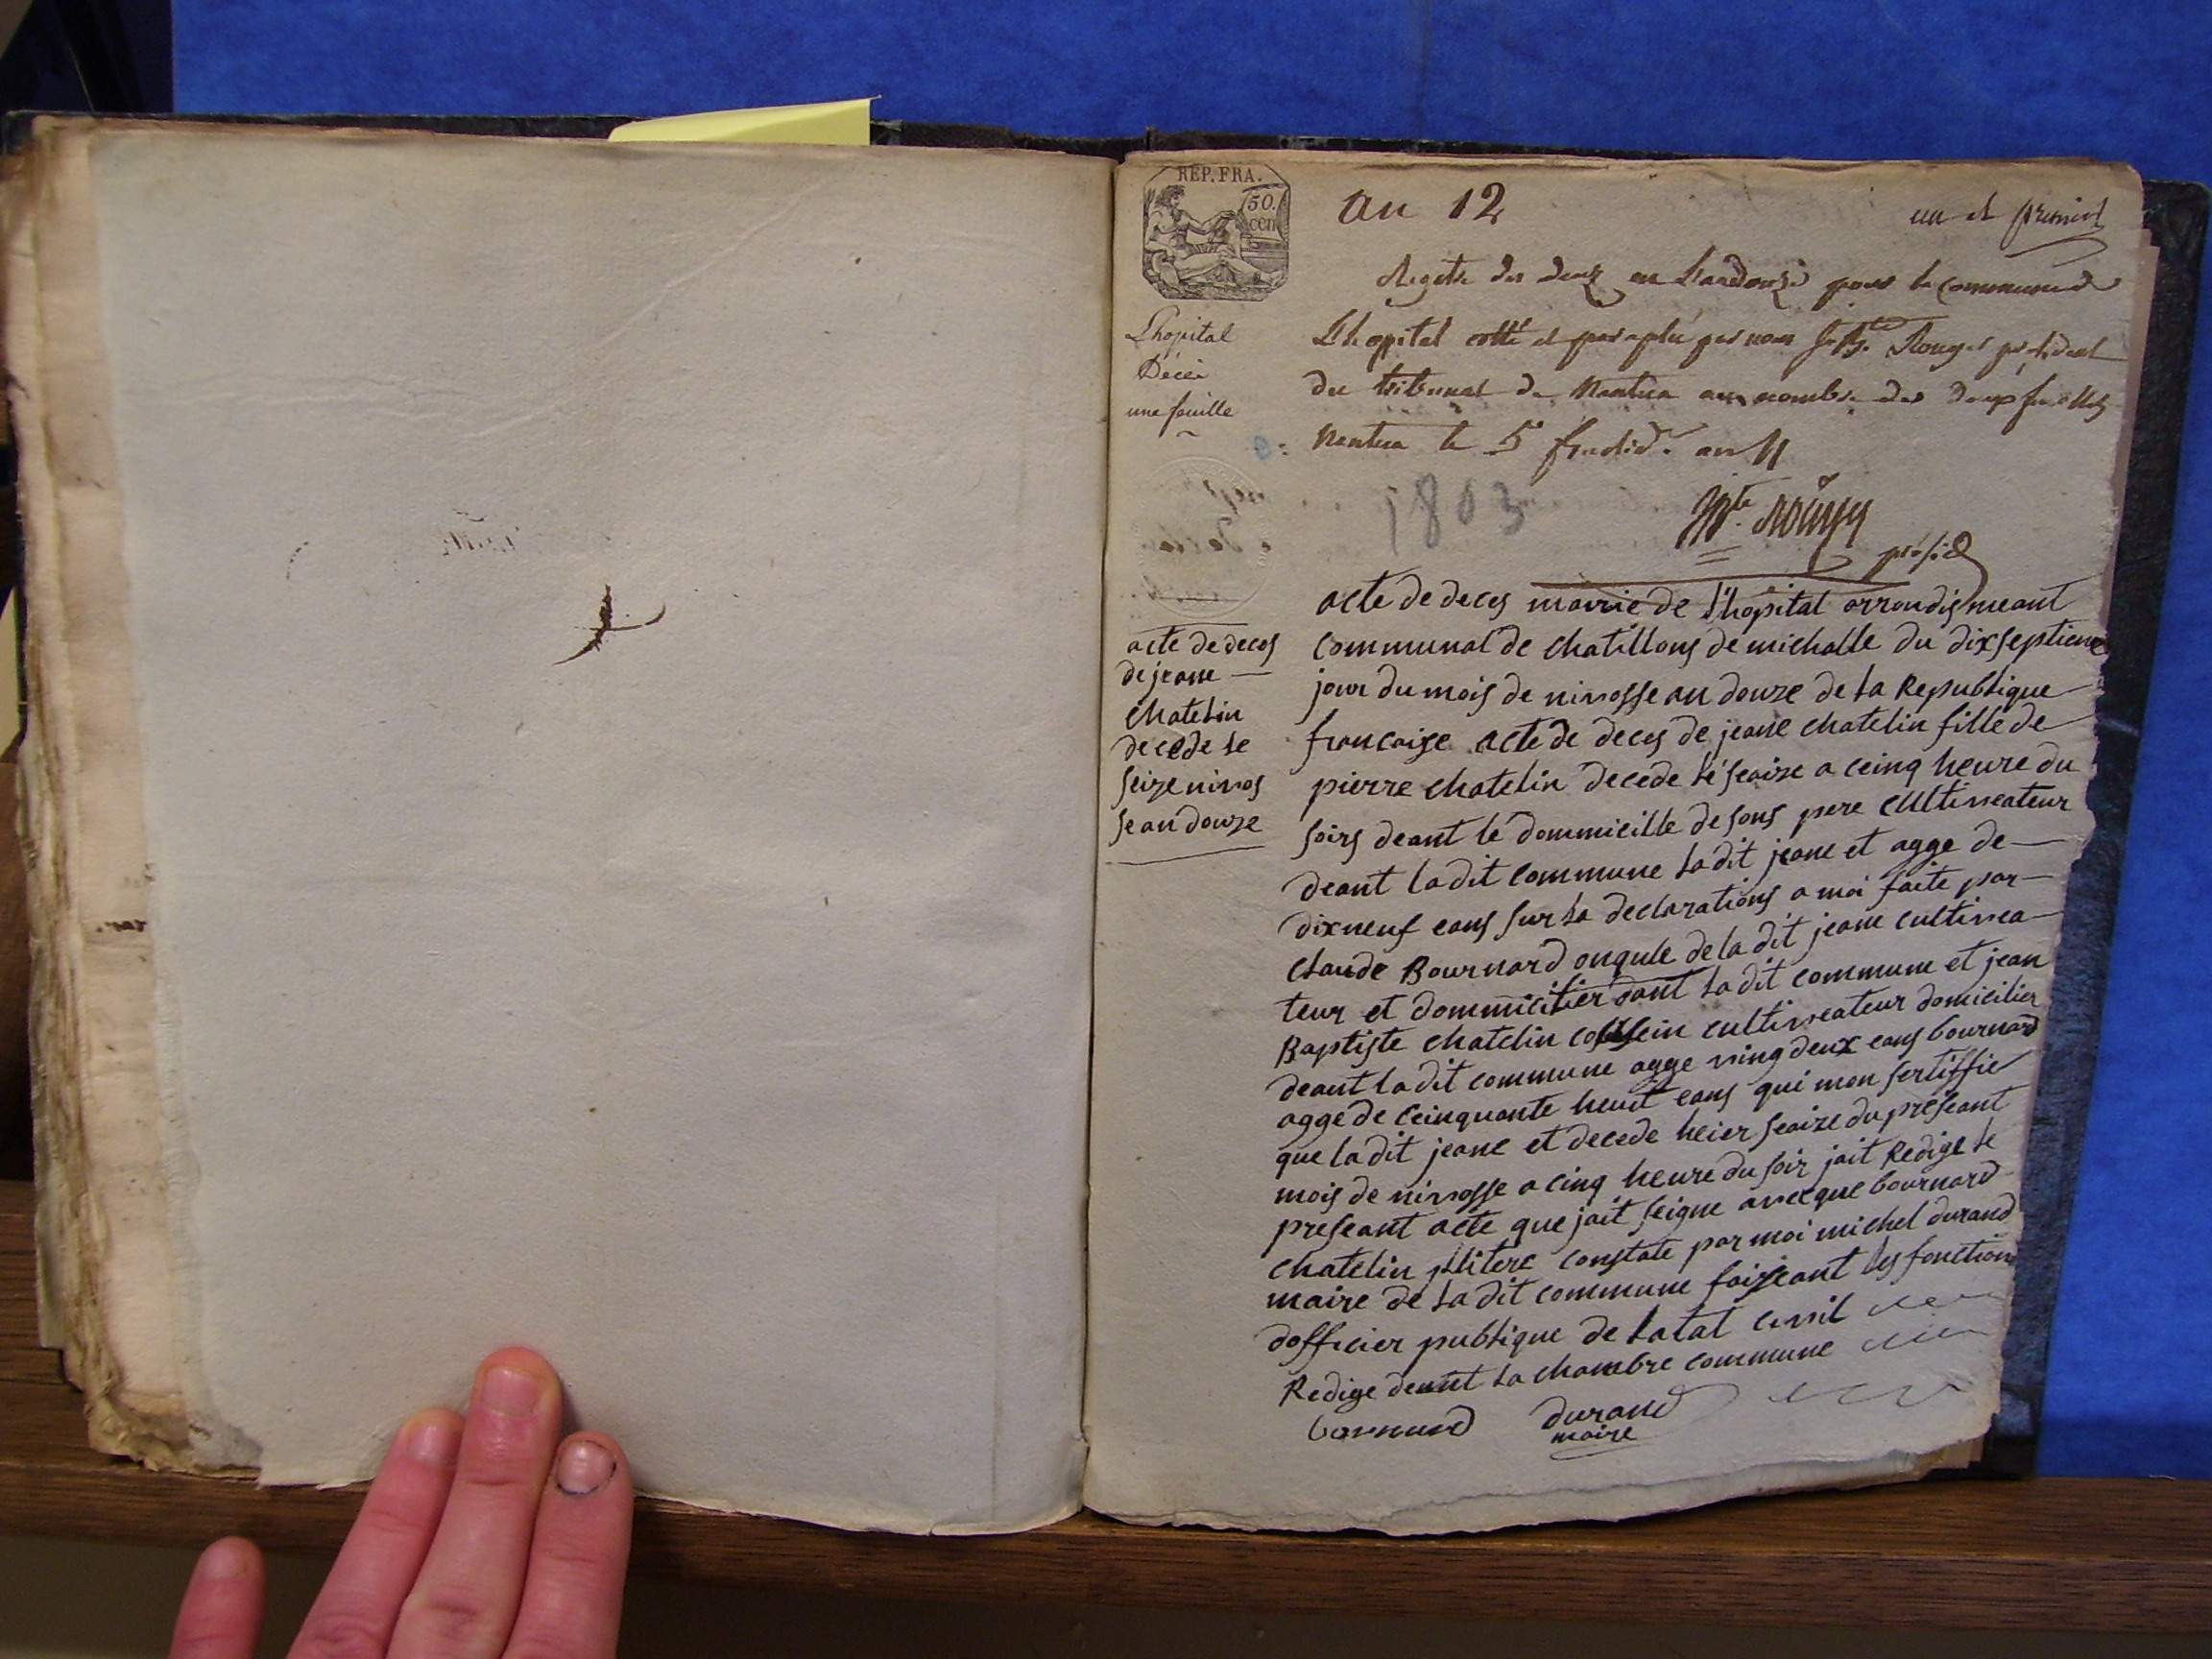 REP. FRA.
50.
cen
an 12
un et premier
Registre des deces en l'andouze pour la commune de
L'hopital cotté et paraphé par nous J. Bte. Rouget president
du tribunal de Nantua au nombre de deux feuilles
Nantua le 5 fructid. an 11
1803
J Bte. Rouget
présid
L'hopital
Décès
une feuille
acte de deces
de jeane
chatelin
decede le
seize nivos
se an douze
acte de deces mairie de l'hopital arrondismeant
communal de chatillons de michalle du dixseptieme
jour du mois de nivosse an douze de la Republique
francaise acte de deces de jeane chatelin fille de
pierre chatelin decede le seaize a ceinq heure du
soirs deant le dommicille de sons pere cultiveateur
deant la dit commune la dit jeane et agge de
dixneuf eans sur la declarations a moi faite par
claude Bournard onqule de la dit jeane cultivea
teur et dommicilier dant la dit commune et jean
Baptiste chatelin cousein cultiveateur domicilier
deant la dit commune agge ving deux eans bournard
agge de ceinquante heuit eans qui mon sertiffie
que la dit jeane et decede heier seaize du preseant
mois de nivosse a cinq heure du soir jait Redige le
preseant acte que jait seigne avecque bournard
chatelin illitere constate par moi michel durand
maire de la dit commune faiseant les fonctions
dofficier publique de latat civil
Redige deant la chambre commune
bournard durand
maire